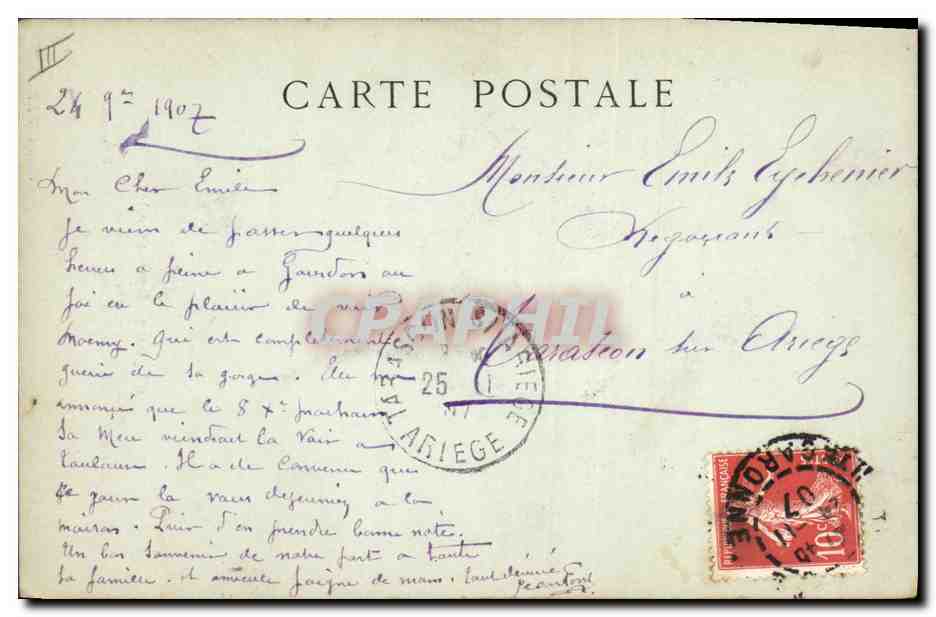 III
CARTE POSTALE
24 9re 1907
Mon Cher Emile
Je viens de passer quelques
heures a peine a Gourdon ou
j'ai eu le plaisir de voir
Noemy. qui est completement
guerie de sa gorge. Elle m'a
annoncé que le 8 Xre prochain
sa Mere viendrait la voir a
toulouse. Il a de Convenu que
ce jour la vous dejeuniez a la
maison. Prier d'en prendre bonne note.
Un bon Souvenir de notre part a toute
la famille. et amicale poigne de main. tout devoué
Monsieur Emile Eychenier
Negociant
à
Tarascon sur Ariege
CPAPHIL
TARASCON S ARIEGE
25 11
07
ARIEGE
REPUBLIQUE FRANÇAISE
POSTES
10c
HTE GARONNE
07